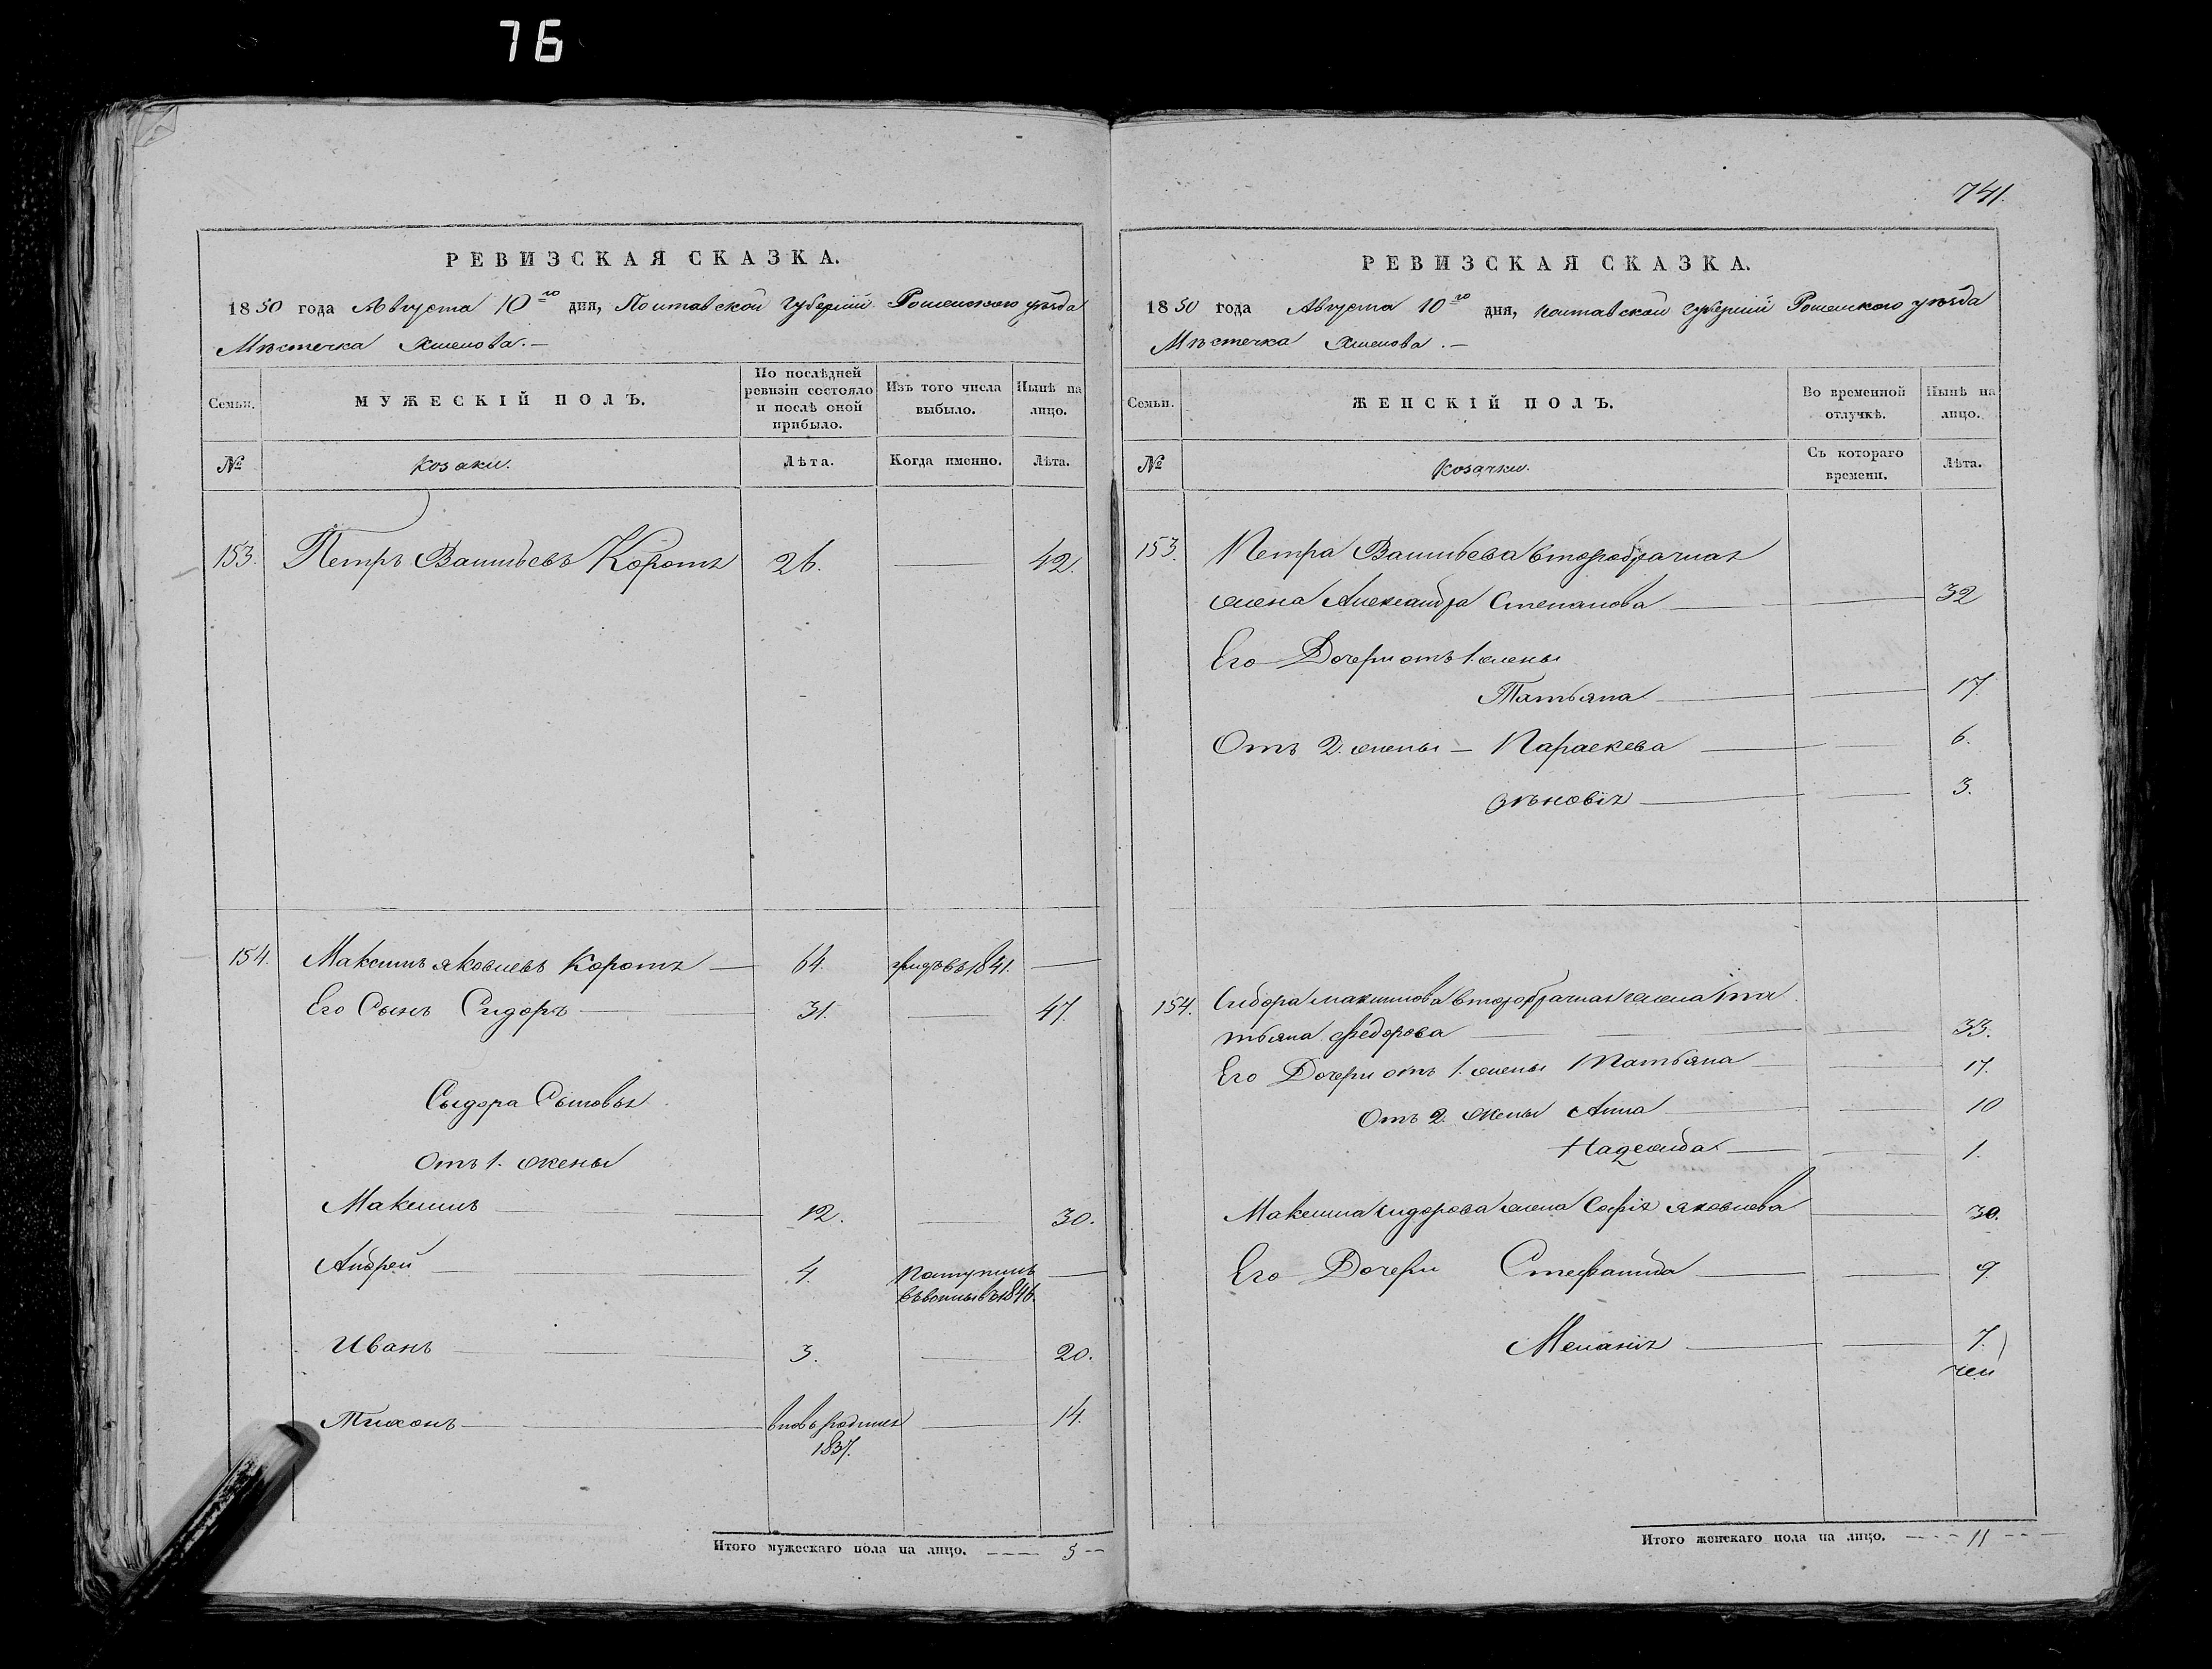 76
РЕВИЗСКАЯ СКАЗКА.
1850 года Августа 10го дня, Полтавской Губерніи Роменского уѣзда
Мѣстечка Хмелова.
Семьи.
МУЖЕСКІЙ ПОЛЪ.
По послѣдней ревизіи состояло и послѣ оной прибыло.
Изъ того числа выбыло.
Нынѣ на лицо.
№
Козаки.
Лѣта.
Когда именно.
Лѣта.
153. Петръ Васильевъ Коротя 26. 42.
154. Максимъ Яковлевъ Коротя 64. въ 1841.
Его Сынъ Сидоръ 31. 47.
Сидора Сыновья
Отъ 1. жены
Максимъ 12. 30.
Андрей 4. Поступилъ
въ 1846.
Иванъ 3. 20.
Тихонъ вновь родился 14.
1837.
Итого мужескаго пола на лицо. 5
741.
РЕВИЗСКАЯ СКАЗКА.
1850 года Августа 10го дня, Полтавской Губерніи Роменского уѣзда
Мѣстечка Хмелова.
Семьи.
ЖЕНСКІЙ ПОЛЪ.
Во временной отлучкѣ.
Нынѣ на лицо.
№
Козачки.
Съ котораго времени.
Лѣта.
153. Петра Васильева второбрачная
жена Александра Степанова 32
Его Дочери отъ 1. жены
Татьяна 17.
Отъ 2. жены Параскева 6.
Зѣновія 3.
154. Сидора Максимова второбрачная жена
тьяна Федорова 33.
Его Дочери отъ 1. жены Татьяна 17.
Отъ 2. жены Анна 10
Надежда 1.
Максима Сидорова жена Софія Яковлева 30.
Его Дочери Стефанида 9.
Меланія 7.
Итого женскаго пола на лицо. 11